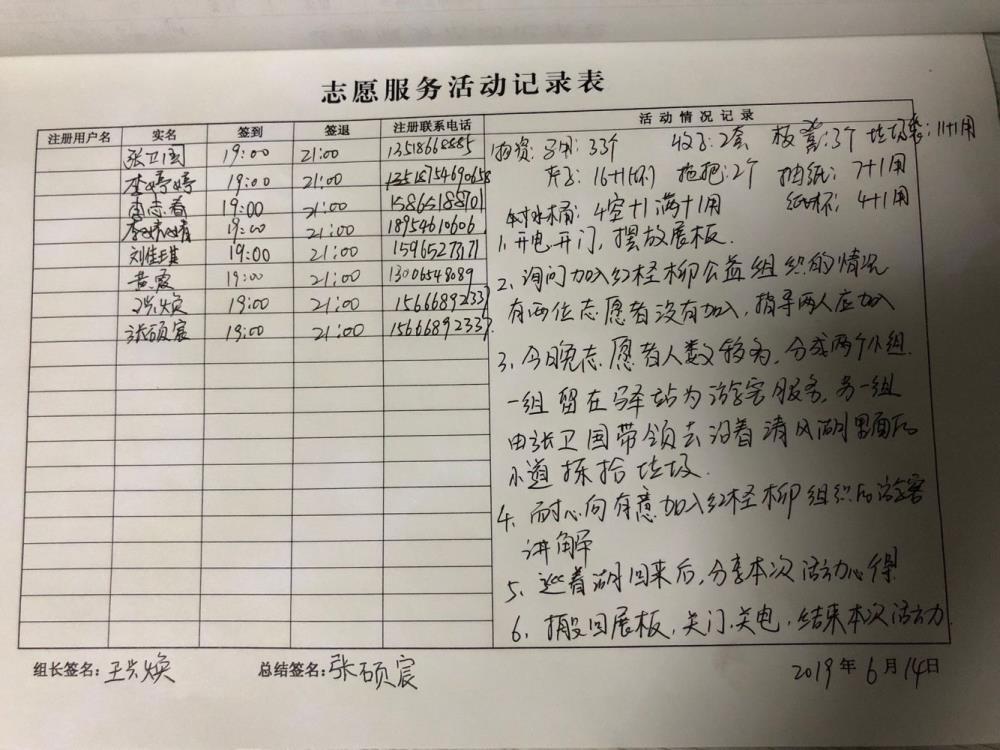 志愿服务活动记录表
注册用户名 实名 签到 签退 注册联系电话 活动情况记录
张卫国 19:00 21:00 13518668885
李婷婷 19:00 21:00 18754690658
李志春 19:00 21:00 15865188701
李婧婧 19:00 21:00 18954610606
刘佳琪 19:00 21:00 15965273171
黄霞 19:00 21:00 13006548089
19:00 21:00 15666892337
张硕宸 19:00 21:00 15666892337
物资: 33个 2套 板凳:3个 垃圾袋:11+1用
夹子:16+1(坏) 拖把:2个 抽纸:7+1用
水桶:4空+1满+1用 纸杯:4+1用
1、开电开门,摆放展板.
2、询问加入红柽柳公益组织的情况
有两位志愿者没有加入,指导两人应加入
3、今日晚志愿者人数较多,分成两个小组.
一组留在驿站为游客服务,另一组
由张卫国带领去沿着清风湖里面的
小道拣拾垃圾.
4、耐心向有意加入红柽柳组织的游客
讲解
5、巡着湖回来后,分享本次活动心得
6、搬回展板,关门、关电,结束本次活动
组长签名: 总结签名:张硕宸 2019年6月14日